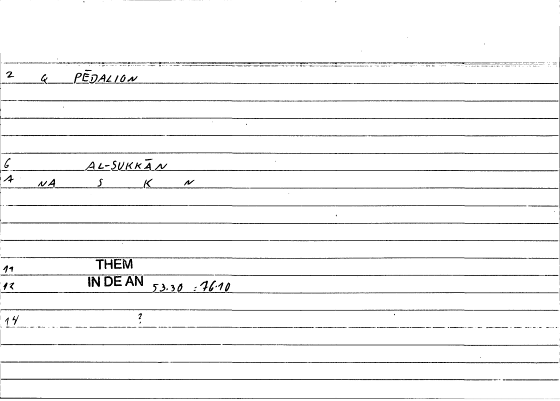 2 G PĒDALION
6 AL-SUKKĀN
A NA S K N
11 THEM
12 IN DE AN 53.30 : 76.10
14 ?